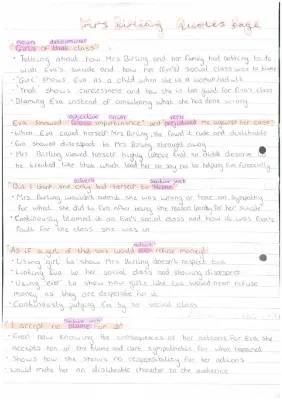 Mrs Birling Quotes page
noun determiner
"Girls of that class"
• Talking about how Mrs Birling and her family had nothing to do
with Eva's suicide and how her (Eva's) social class was to blame
• 'Girl' shows Eva as a child when she is a woman/adult
• 'That' shows carelessness and how she is too good for Eva's class
• Blaming Eva instead of considering what she has done wrong.
adjective noun verb
Eva showed "gross impertinence" and "prejudiced me against her case"
• When Eva called herself Mrs Birling, she found it rude and dislikable
• Eva showed disrespect to Mrs Birling straight away
• Mrs Birling viewed herself highly above Eva so didn't deserve to
be treated like that which lead her to say no to helping Eva financially
adverb
"But I think she only had herself to blame"
• Mrs Birling wouldn't admit she was wrong or have any sympathy
for what she did to Eva after being the reason for her suicide
• Continuously blamed it on Eva's social class and how it was Eva's
fault for the class she was in
"As if a girl of that sort would ever refuse money!"
• Using 'girl' to show Mrs Birling doesn't respect Eva
• Linking Eva to her social class and showing disrespect
• Using 'ever' to show how girls like Eva would never refuse
money as they are desperate for it
• Continuously judging Eva by her social class
"I accept no blame for it"
• Even now knowing the consequences of her actions for Eva she
accepts non of the blame and isn't sympathetic for what happened
• Shows how she shows no responsibility for her actions
• Would make her an dislikeable character to the audience